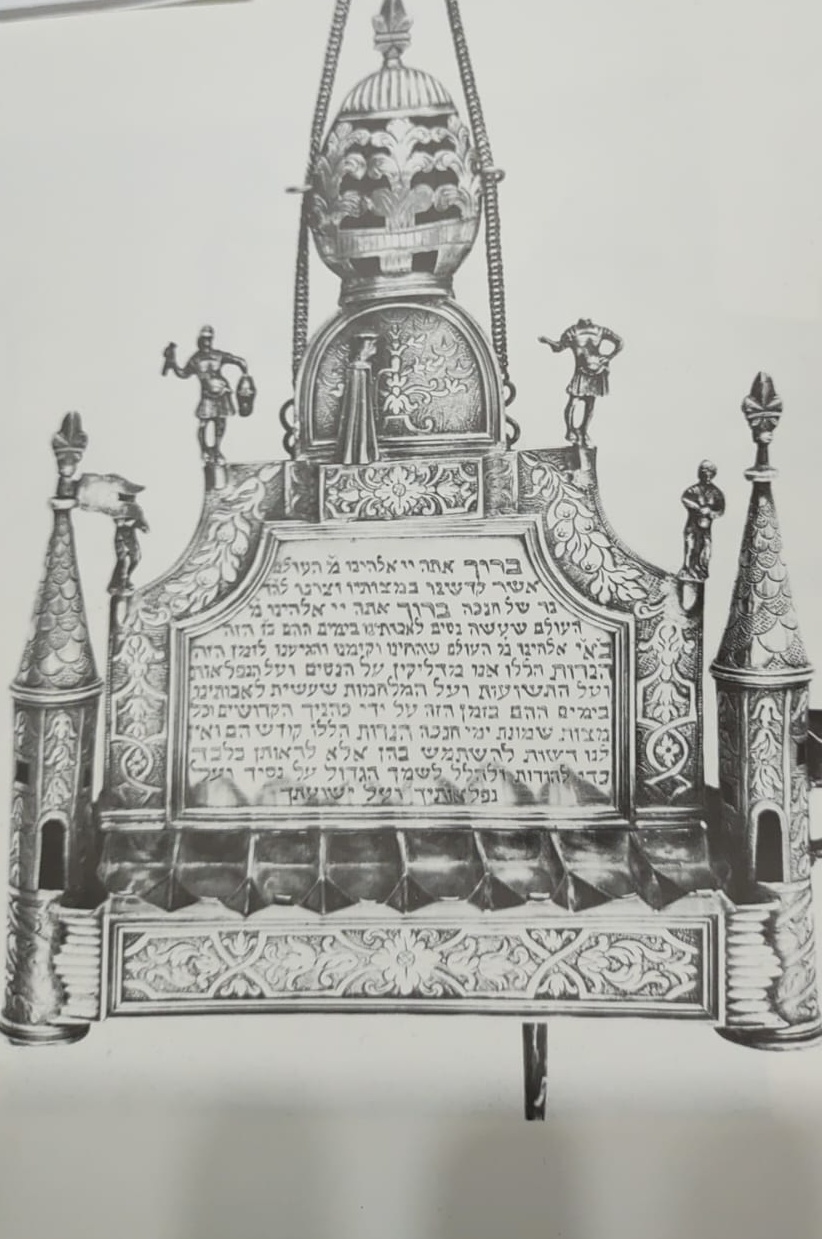 ברוך אתה יי אלהינו מ̈ העולם
אשר קדשינו במצותיו וצונו להד
נר של חנכה ברוך אתה יי אלהינו מ̈
העולם שעשה נסים לאבותינו בימים ההם בז הזה
בא̈י אלהינו מ̈ העולם שהחיינו וקימנו והגיענו לזמן הזה
הנרות הללו אנו מדליקין על הנסים ועל הנפלאות
ועל התשועות ועל המלחמות שעשית לאבותינו
בימים ההם בזמן הזה על ידי כהניך הקדושים וכל
מצות שמונת ימי חנכה הנרות הללו קודש הם ואין
לנו רשות להשתמש בהן אלא לראותן בלבד
כדי להודות ולהלל לשמך הגדול על נסיך ועל
נפלאותיך ועל ישועתך